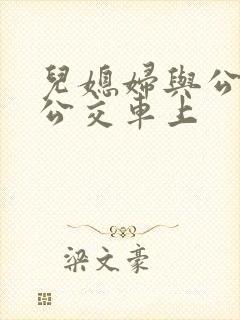 兒媳婦與公
公交車上
梁文豪